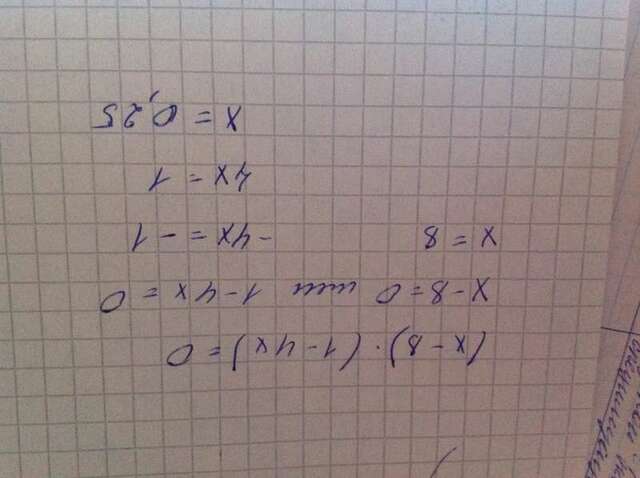 (x-8)·(1-4x)=0
x-8=0 или 1-4x=0
x=8 -4x=-1
4x=1
x=0,25